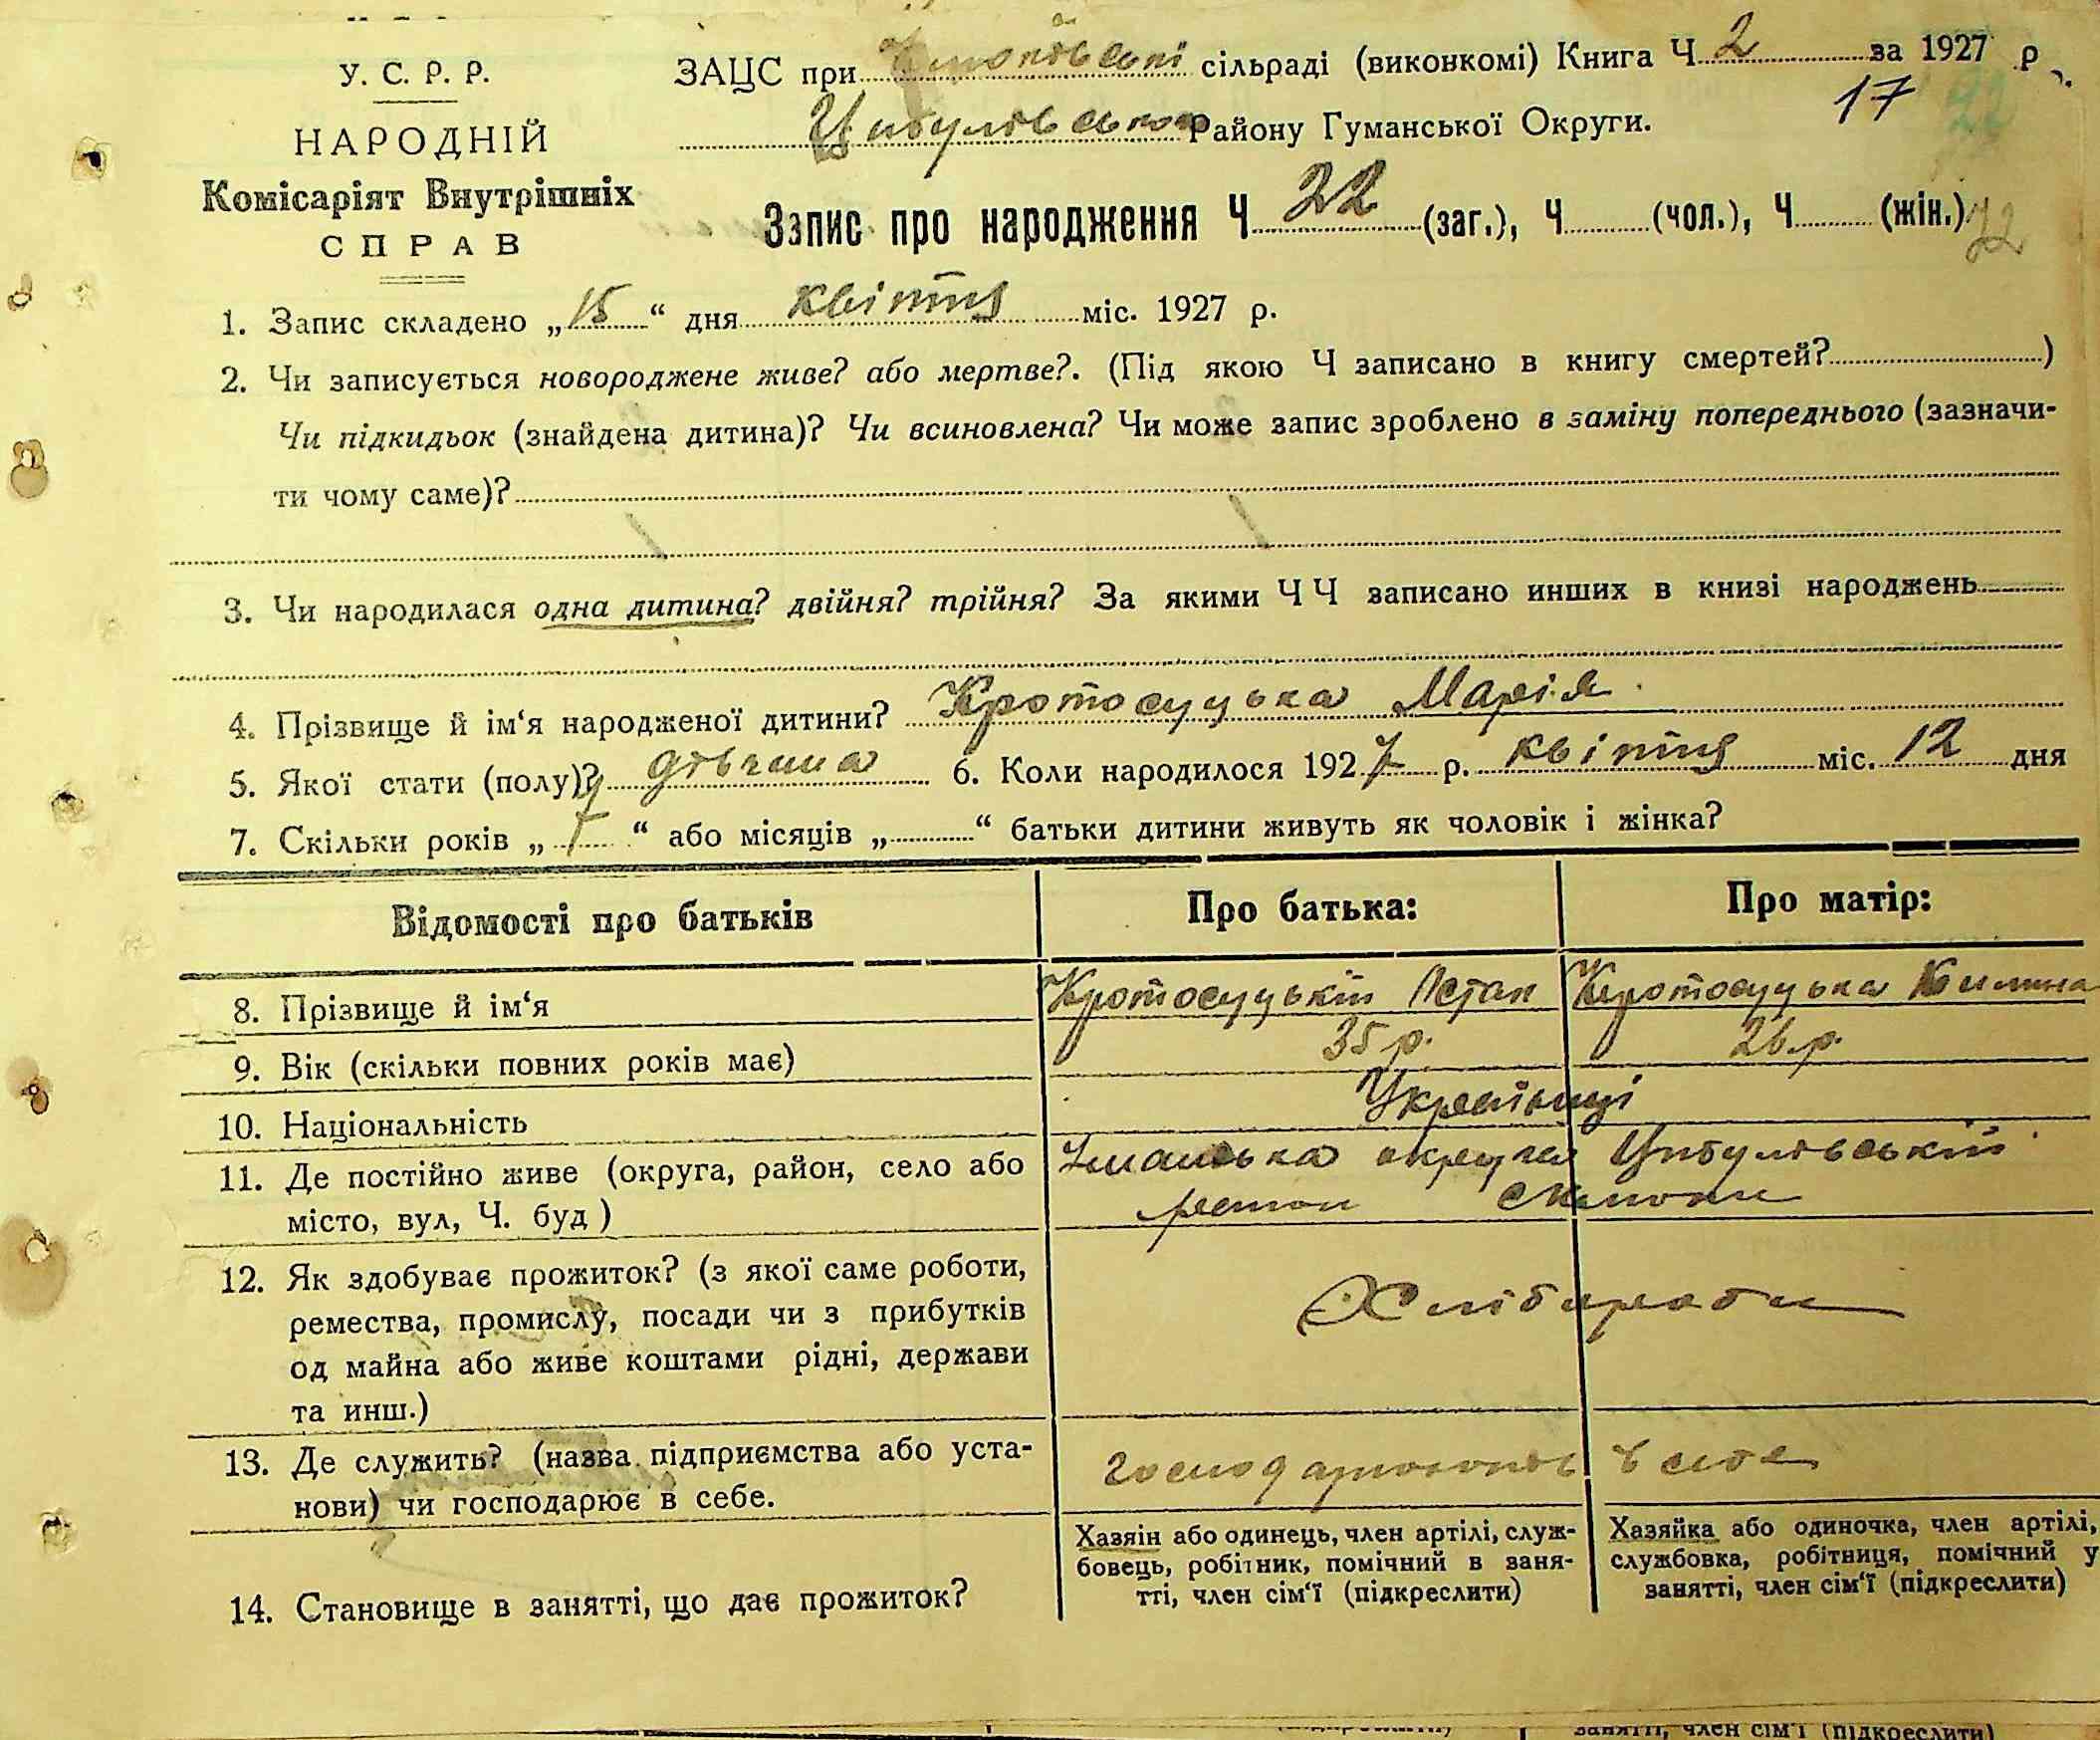 У. С. Р. Р.
НАРОДНІЙ
Комісаріят Внутрішніх
СПРАВ
ЗАЦС при сільраді (виконкомі) Книга Ч 2 за 1927 р.
Цибулівського Району Гуманської Округи.
17 22
Запис про народження Ч 22 (заг.), Ч (чол.), Ч (жін.)
1. Запис складено „15“ дня квітня міс. 1927 р.
2. Чи записується новороджене живе? або мертве?. (Під якою Ч записано в книгу смертей? )
Чи підкидьок (знайдена дитина)? Чи всиновлена? Чи може запис зроблено в заміну попереднього (зазначи-
ти чому саме)?
3. Чи народилася одна дитина? двійня? трійня? За якими ЧЧ записано инших в книзі народжень
4. Прізвище й ім‘я народженої дитини? Кротосуцька Марія
5. Якої стати (полу)? дівчина 6. Коли народилося 1927 р. квітня міс. 12 дня
7. Скільки років „ “ або місяців „ “ батьки дитини живуть як чоловік і жінка?
Відомості про батьків
Про батька:
Про матір:
8. Прізвище й ім‘я
Кротосуцькій Остап
Кротосуцька Килина
9. Вік (скільки повних років має)
35 р.
26 р.
10. Національність
Українці
11. Де постійно живе (округа, район, село або
місто, вул, Ч. буд )
Уманська округа Цибулівський
район
12. Як здобуває прожиток? (з якої саме роботи,
ремества, промислу, посади чи з прибутків
од майна або живе коштами рідні, держави
та инш.)
Хлібороби
13. Де служить? (назва підприємства або уста-
нови) чи господарює в себе.
в себе
14. Становище в занятті, що дає прожиток?
Хазяін або одинець, член артілі, служ-
бовець, робітник, помічний в заня-
тті, член сім‘ї (підкреслити)
Хазяйка або одиночка, член артілі,
службовка, робітниця, помічний у
занятті, член сім‘ї (підкреслити)
занятті, член сім‘ї (підкреслити)